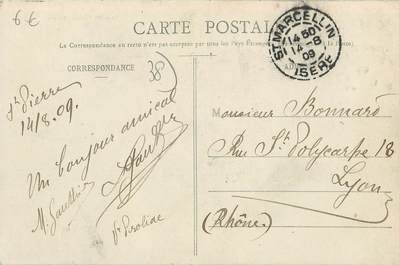 6 €
CARTE POSTALE
La Correspondance au recto n'est pas acceptée par tous les Pays Étrangers
CORRESPONDANCE
38
ST MARCELLIN
14 50
14 -8
09
ISÈRE
St Pierre
14/8.09.
Un bonjour amical
M. Gauthier
Monsieur Bonnard
Rue St Polycarpe 18
Lyon
(Rhône)